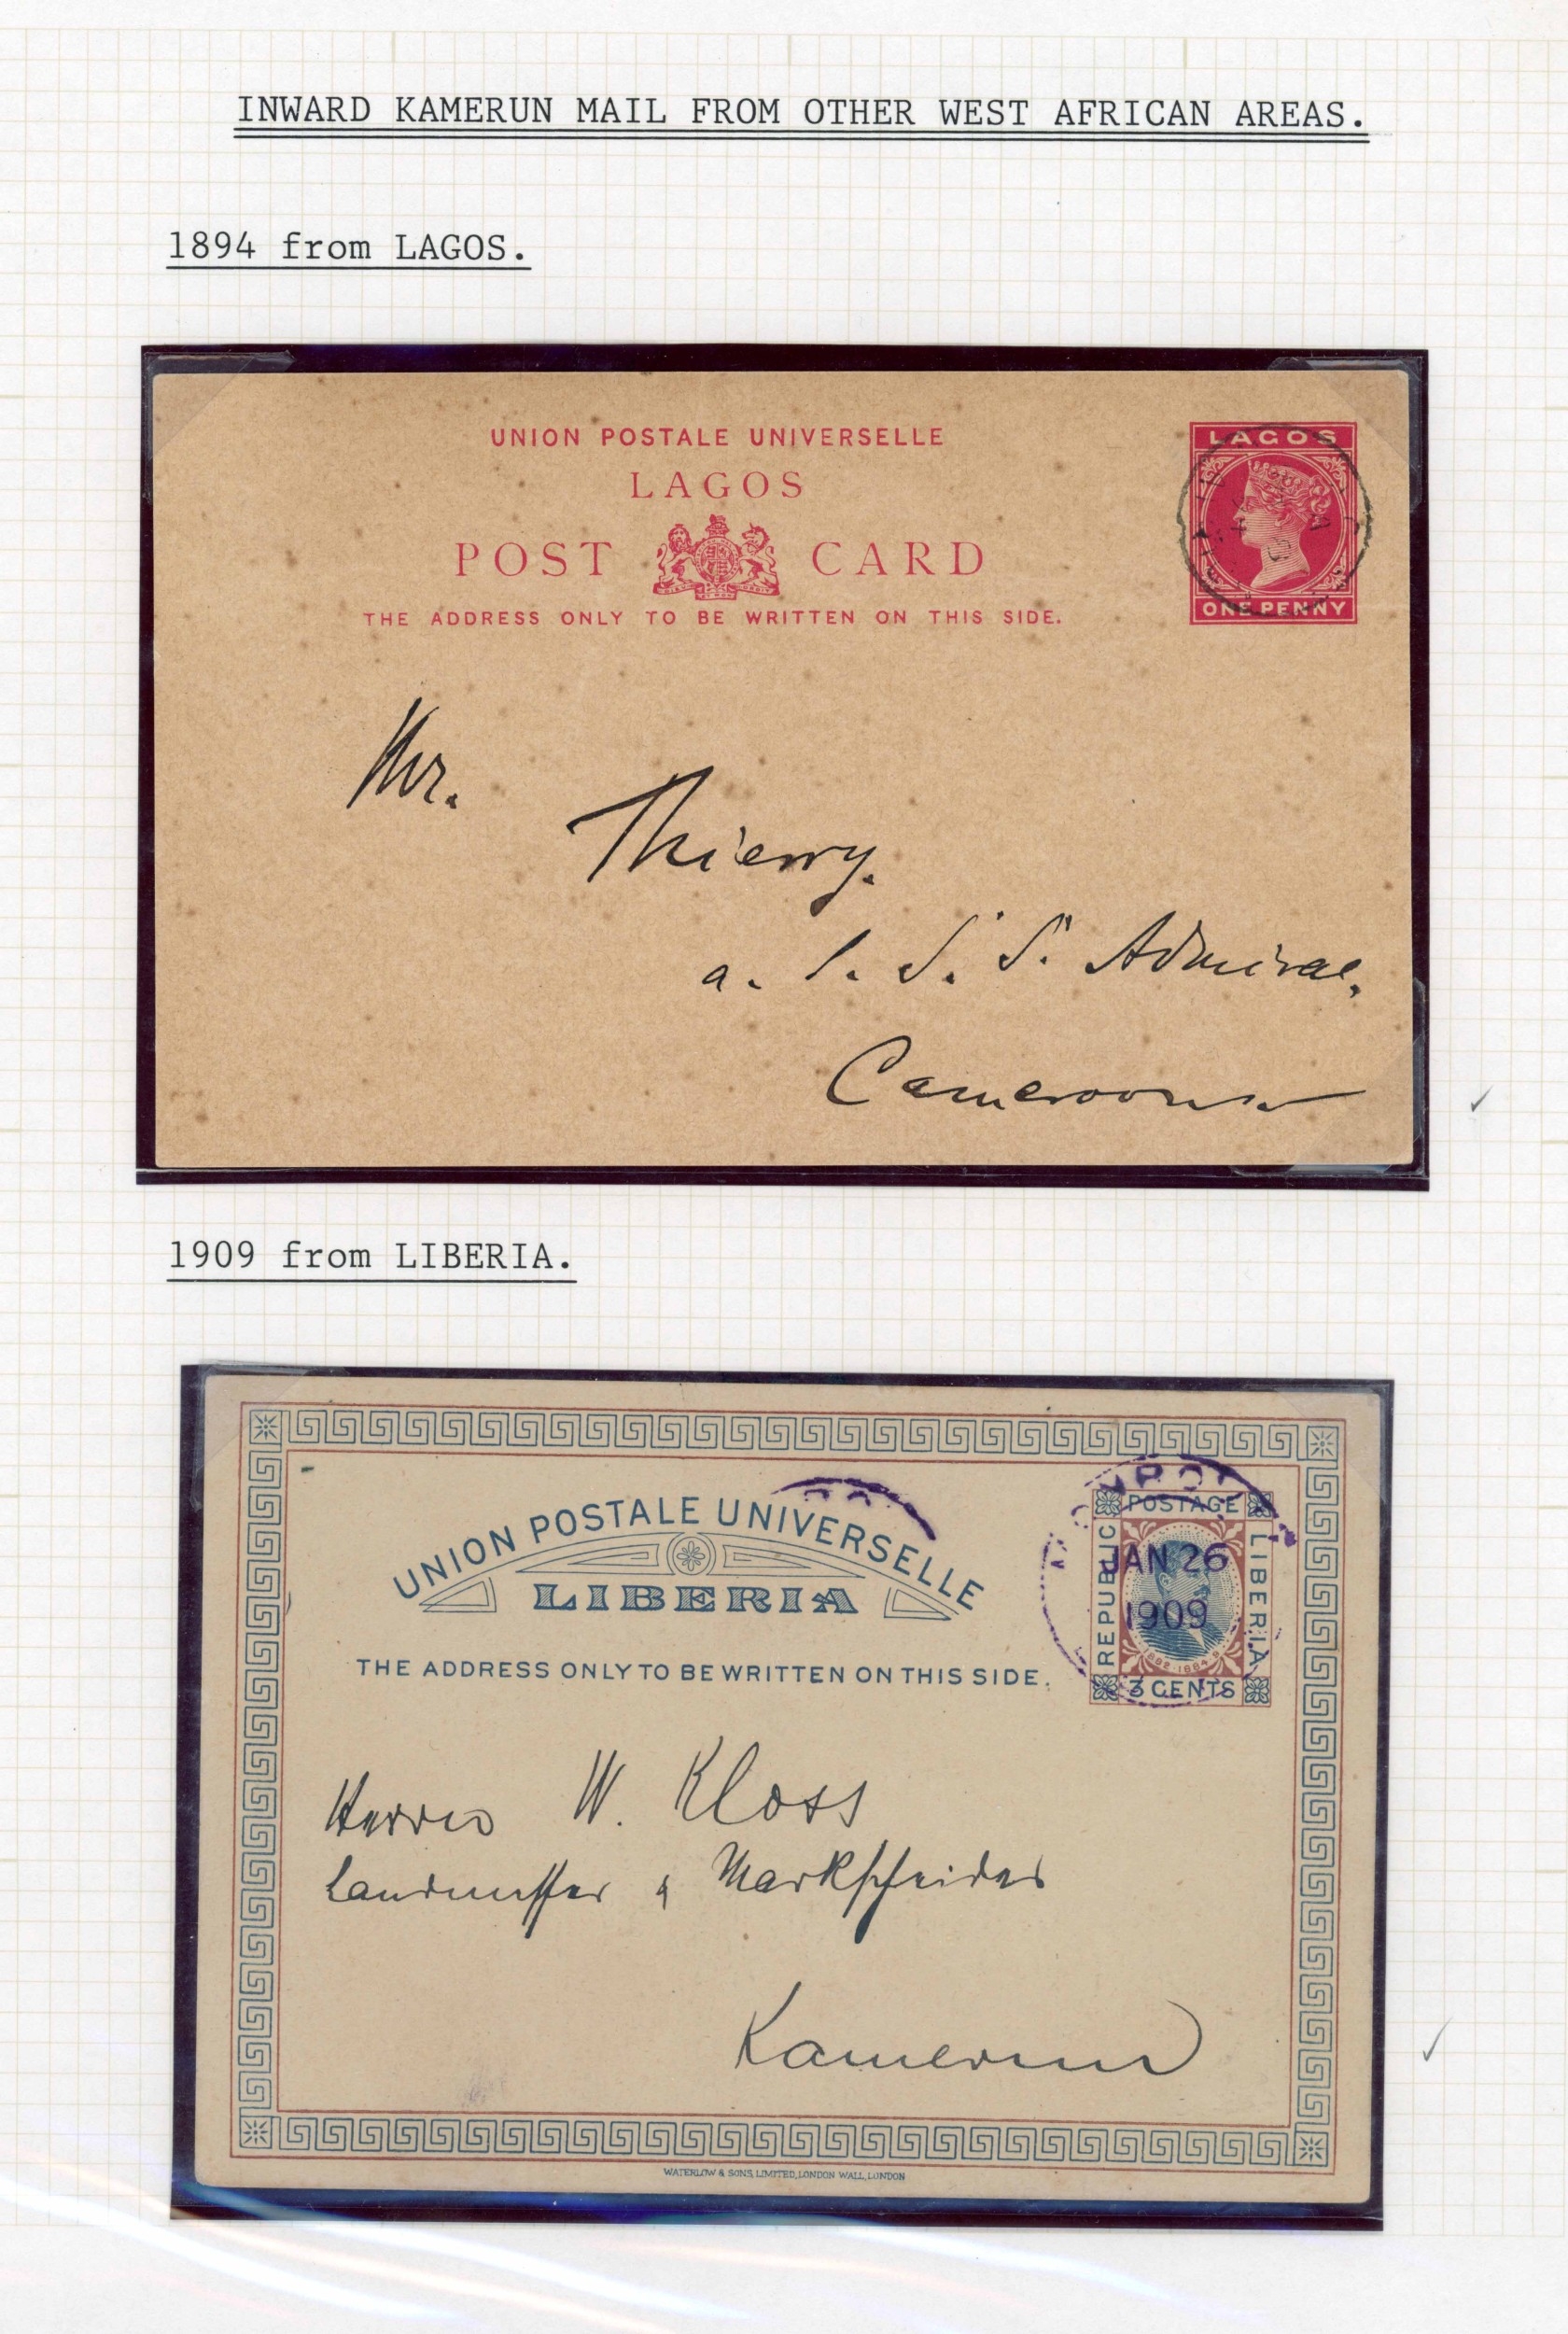 INWARD KAMERUN MAIL FROM OTHER WEST AFRICAN AREAS.
1894 from LAGOS.
UNION POSTALE UNIVERSELLE
LAGOS
POST CARD
THE ADDRESS ONLY TO BE WRITTEN ON THIS SIDE.
LAGOS
ONE PENNY
Mr.
Thierry.
a. l. S. S. Admiral.
Cameroons.
1909 from LIBERIA.
UNION POSTALE UNIVERSELLE
LIBERIA
THE ADDRESS ONLY TO BE WRITTEN ON THIS SIDE.
POSTAGE
REPUBLIC
LIBERIA
3 CENTS
JAN 26
1909
Herrn W. Kloss
Landmesser & Markscheider
Kamerun
WATERLOW & SONS, LIMITED, LONDON WALL, LONDON